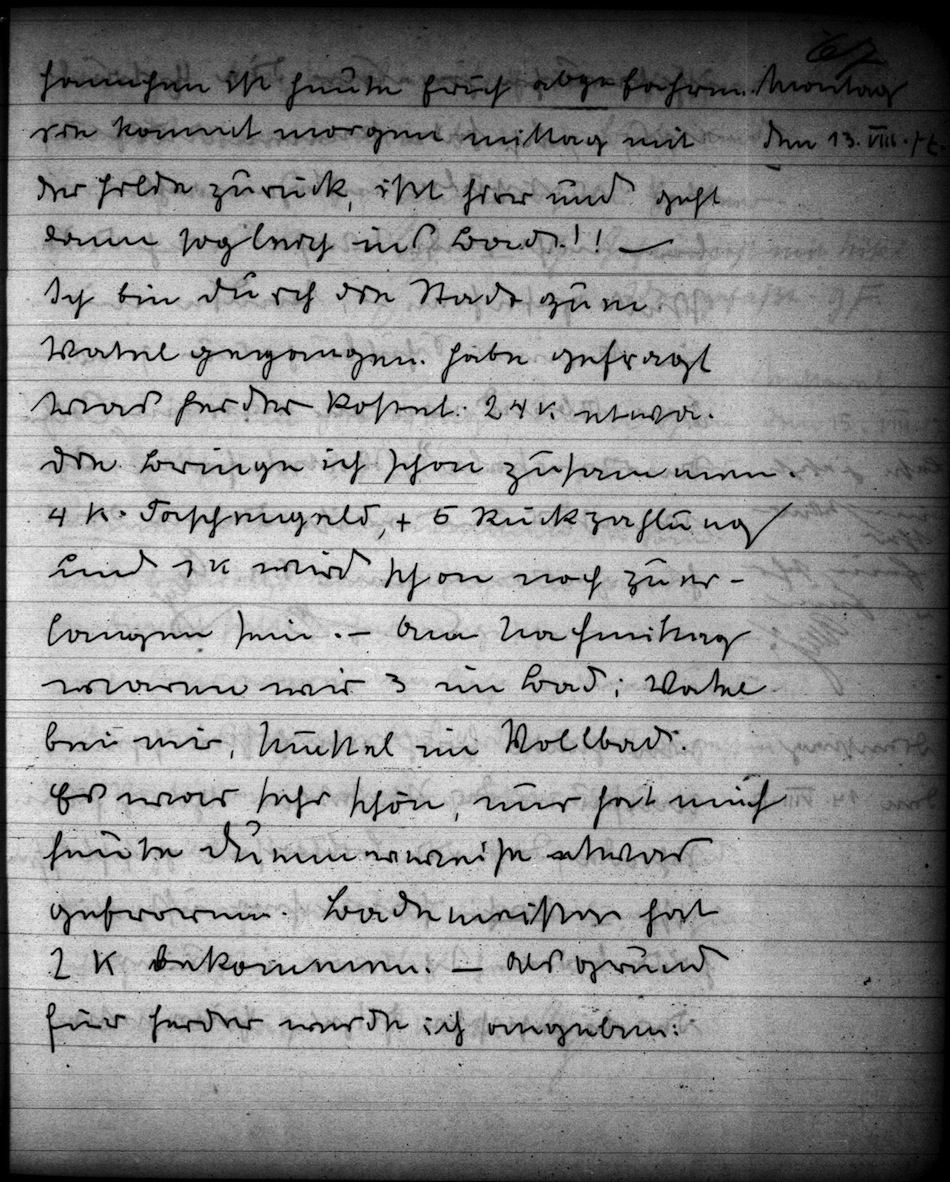 67
Hannchen ist heute früh abgefahren. Montag
sie kommt morgen mittag mit den 13. VIII.
der Hilde zurück, isst hier und geht
dann sogleich ins Bad.!! —
Ich bin durch die Stadt zum
Vatel gegangen. habe gefragt
was Herder kostet. 24 K. etwa.
die bringe ich schon zusammen.
4 K. Taschengeld, + 5 Rückzahlung
und 1 K wird schon noch zu er-
langen sein. — Am Nachmittag
waren wir 3 im Bad; Vatel
bei mir, Muttel im Vollbad.
Es war sehr schön, nur hat mich
heute dummerweise etwas
gefroren. Bademeister hat
2 K bekommen. — Als Grund
für Herder werde ich angeben: